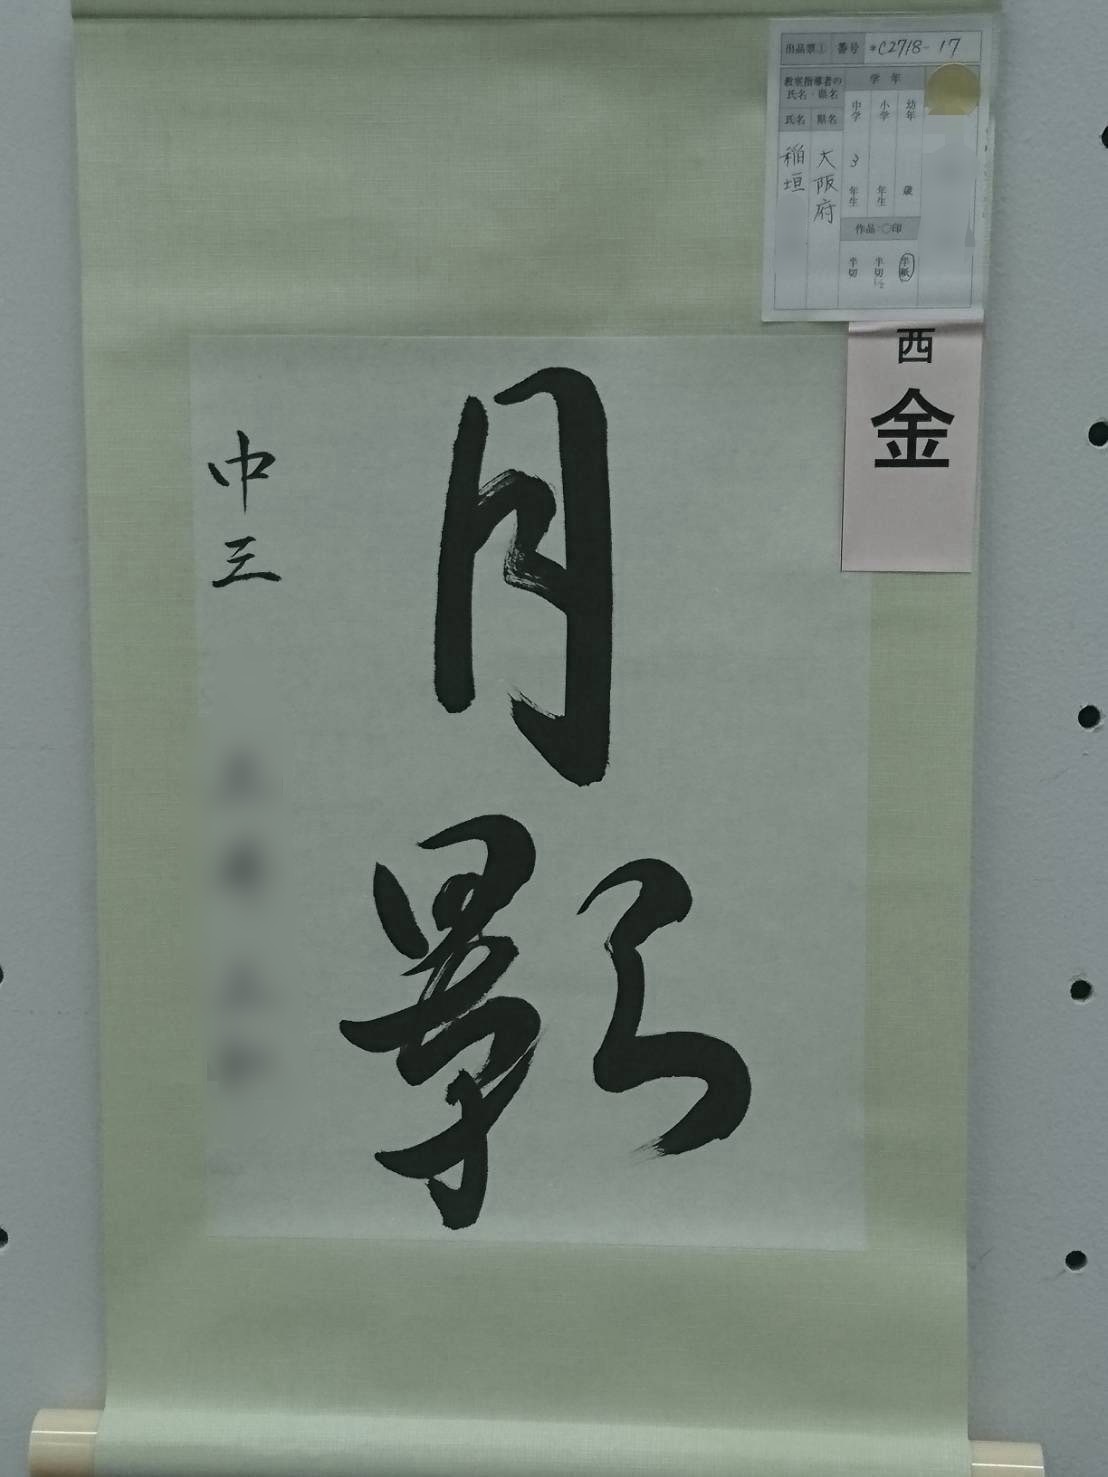 月影
中三
出品票① 番号 *C2718-17
教室指導者の
氏名・県名
学年
氏名 県名
稲垣
大阪府
中学 3 年生
小学 年生
幼年 歳
作品:○印
半切
半切1/2
半紙
西
金